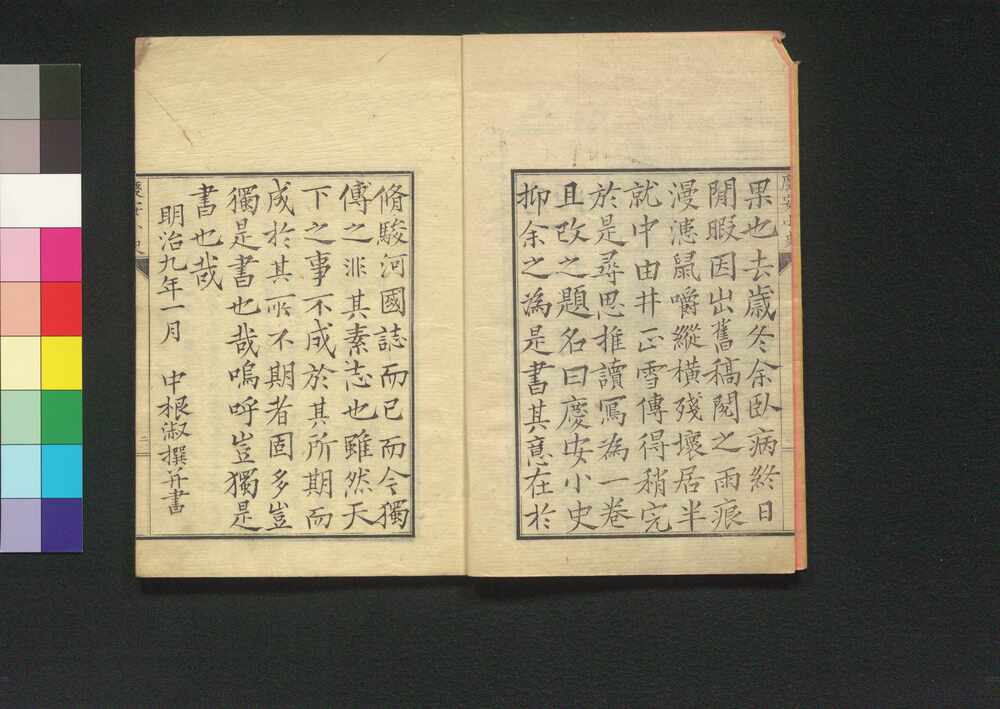 果也去歲冬余臥病終日
閒暇因出舊稿閱之雨痕
漫漶鼠嚼縱橫殘壞居半
就中由井正雪傳得稍完
於是尋思推讀寫為一卷
且改之題名曰慶安小史
抑余之為是書其意在於
脩駿河國誌而已而今獨
傳之非其素志也雖然天
下之事不成於其所期而
成於其所不期者固多豈
獨是書也哉嗚呼豈獨是
書也哉
明治九年一月 中根淑撰并書